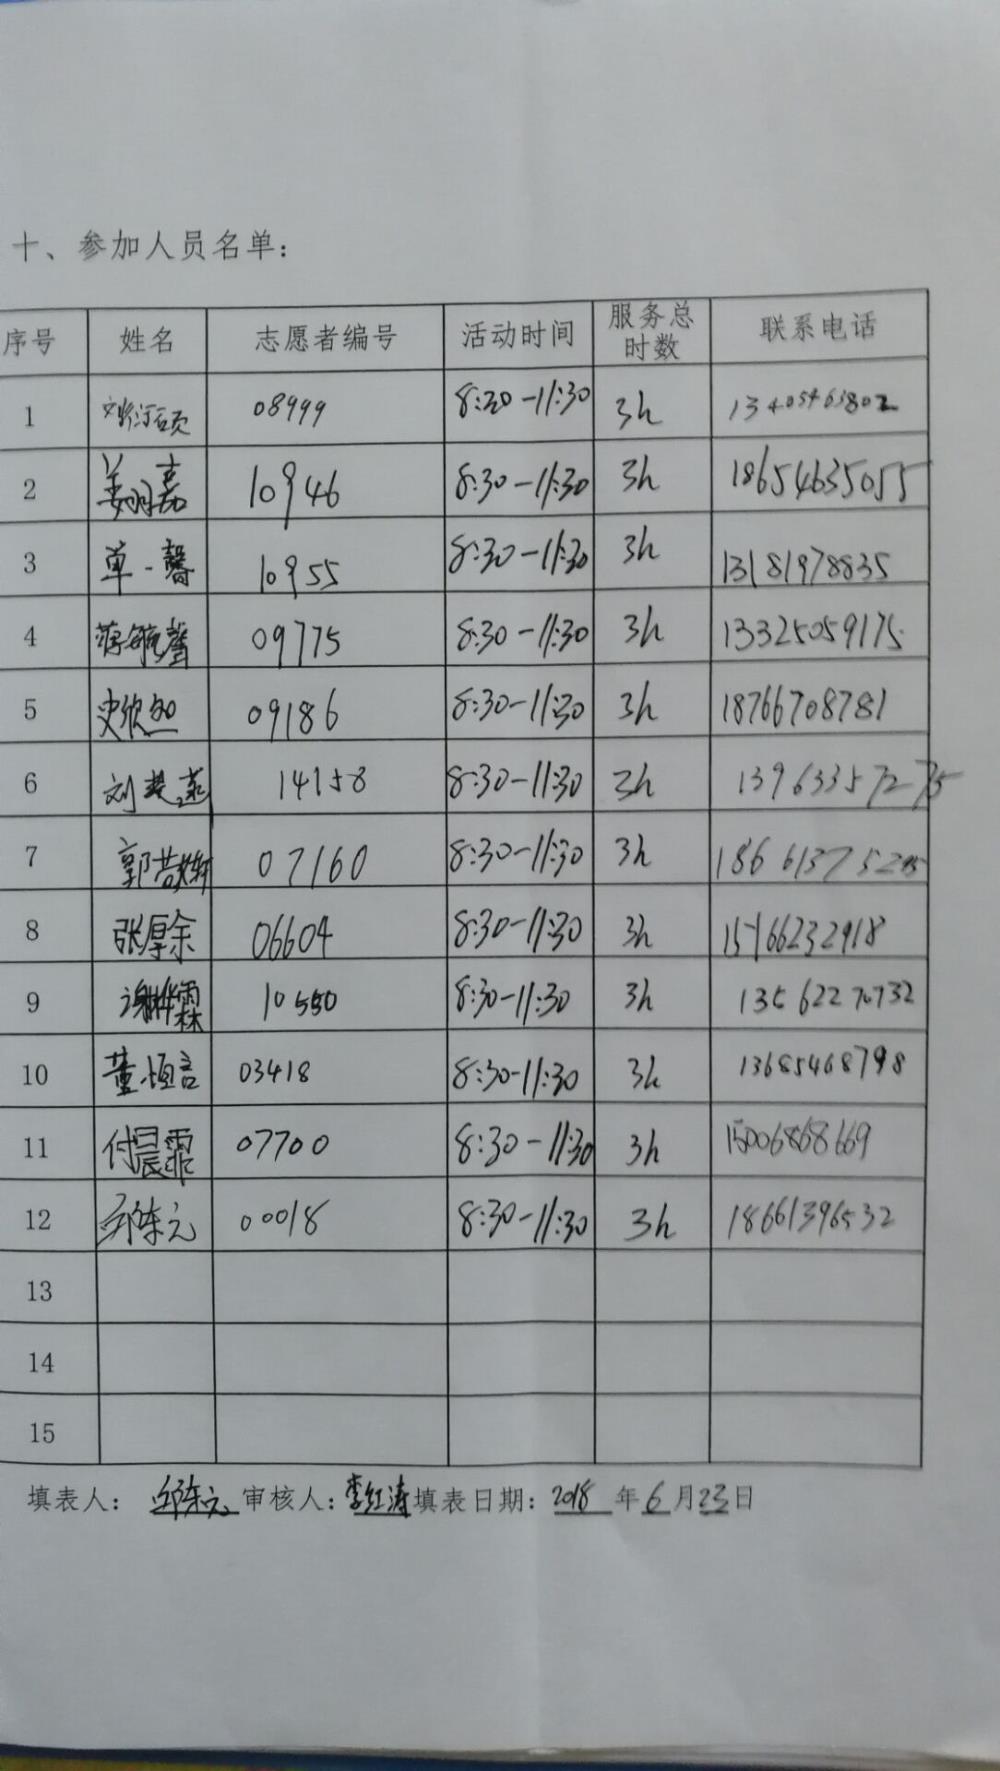 十、参加人员名单：
序号 姓名 志愿者编号 活动时间 服务总时数 联系电话
1 08999 8:30-11:30 3h 13405463802
2 姜明嘉 10946 8:30-11:30 3h 18654635055
3 单一馨 10955 8:30-11:30 3h 13181978835
4 蒋毓馨 09775 8:30-11:30 3h 13325059175
5 史欣如 09186 8:30-11:30 3h 18766708781
6 刘 14158 8:30-11:30 3h 13963357275
7 郭 07160 8:30-11:30 3h
8 张厚余 06604 8:30-11:30 3h 15166232918
9 谢 霖 10550 8:30-11:30 3h 13562270732
10 董恒言 03418 8:30-11:30 3h 13685468798
11 付晨霏 07700 8:30-11:30 3h 15006868669
12 邱东元 00018 8:30-11:30 3h 18661396532
13
14
15
填表人： 邱东元 审核人：李红涛 填表日期：2018 年 6 月 23 日